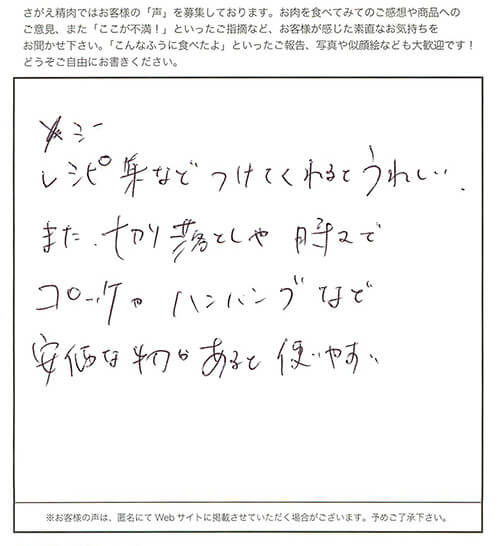 さがえ精肉ではお客様の「声」を募集しております。お肉を食べてみてのご感想や商品への
ご意見、また「ここが不満！」といったご指摘など、お客様が感じた素直なお気持ちを
お聞かせ下さい。「こんなふうに食べたよ」といったご報告、写真や似顔絵なども大歓迎です！
どうぞご自由にお書きください。
レシピ集などつけてくれるとうれしい.
また、切り落としや
コロッケや ハンバーグなど
安価な物があると使いやすい
※お客様の声は、匿名にてWebサイトに掲載させていただく場合がございます。予めご了承下さい。